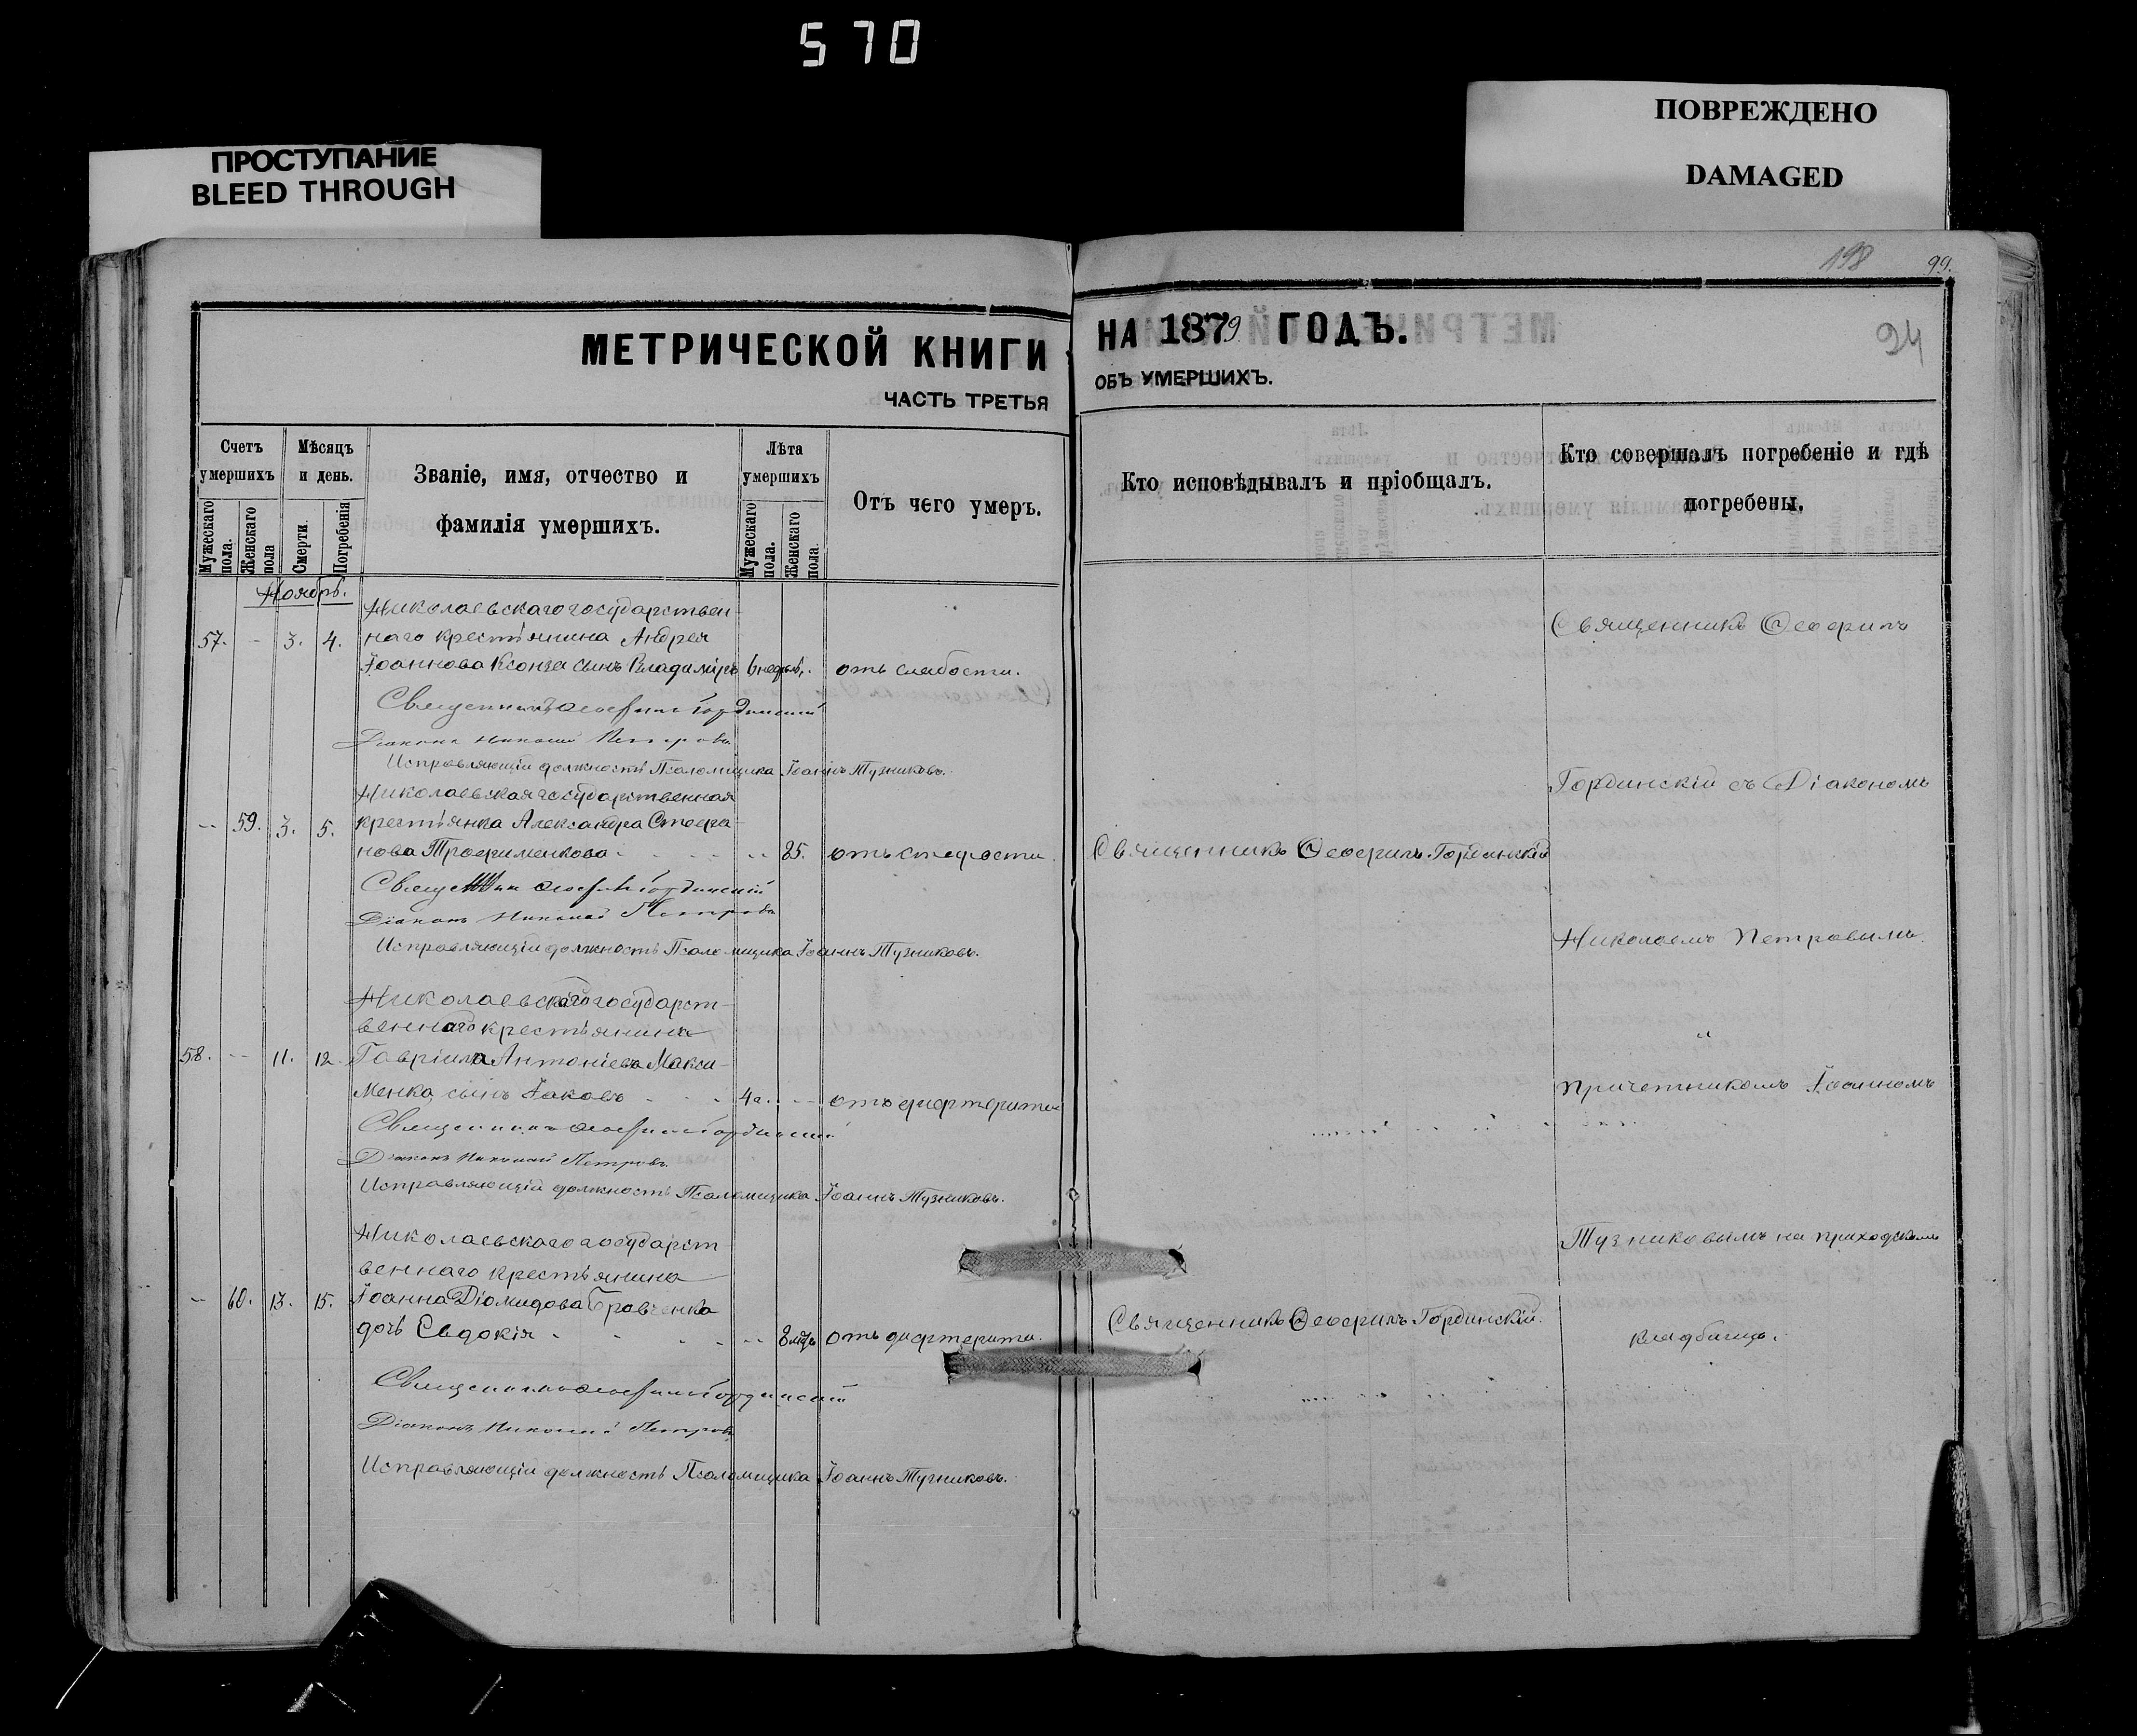 570
ПРОСТУПАНИЕ
BLEED THROUGH
ПОВРЕЖДЕНО
DAMAGED
198
99.
94
МЕТРИЧЕСКОЙ КНИГИ
ЧАСТЬ ТРЕТЬЯ
НА 1879 ГОДЪ.
ОБЪ УМЕРШИХЪ.
Счетъ умершихъ
Мужескаго пола.
Женскаго пола
Мѣсяцъ и день.
Смерти.
Погребенія
Званіе, имя, отчество и
фамилія умершихъ.
Лѣта умершихъ
Мужескаго пола.
Женскаго пола.
Отъ чего умеръ.
Кто исповѣдывалъ и пріобщалъ.
Кто совершалъ погребеніе и гдѣ
погребены.
Ноябрь.
Николаевскаго государствен-
57. - 3. 4. наго крестьянина Андрея
Іоаннова Ксонза сынъ Владиміръ 6 недѣль. отъ слабости.
Священникъ Ѳеофилъ Гординскій
Діаконъ Николай Петровъ
Исправляющій должность Псаломщика Іоаннъ Тузниковъ.
Николаевская государственная
-- 59. 3. 5. крестьянка Александра Стефа-
нова Трофименкова - - - - -- 85. отъ старости. Священникъ Ѳеофилъ Гординскій
Священникъ Ѳеофилъ Гординскій
Діаконъ Николай Петровъ
Исправляющій должность Псаломщика Іоаннъ Тузниковъ.
Николаевскаго государст-
веннаго крестьянина
58. -- 11. 12. Гавріила Антоніева Макси-
менка сынъ Іаковъ - - - 4 г. -- отъ дифтерита
Священникъ Ѳеофилъ Гординскій
Діаконъ Николай Петровъ
Исправляющій должность Псаломщика Іоаннъ Тузниковъ.
Николаевскаго государст
веннаго крестьянина
-- 60. 13. 15. Іоанна Діомидова Бравченка
дочь Евдокія - - - - -- 8 мѣс. отъ дифтерита. Священникъ Ѳеофилъ Гординскій.
Священникъ Ѳеофилъ Гординскій
Діаконъ Николай Петровъ
Исправляющій должность Псаломщика Іоаннъ Тузниковъ.
Священникъ Ѳеофилъ
Гординскій съ Діакономъ
Николаемъ Петровымъ
и
причетникомъ Іоанномъ
Тузниковымъ на приходскомъ
кладбищѣ.